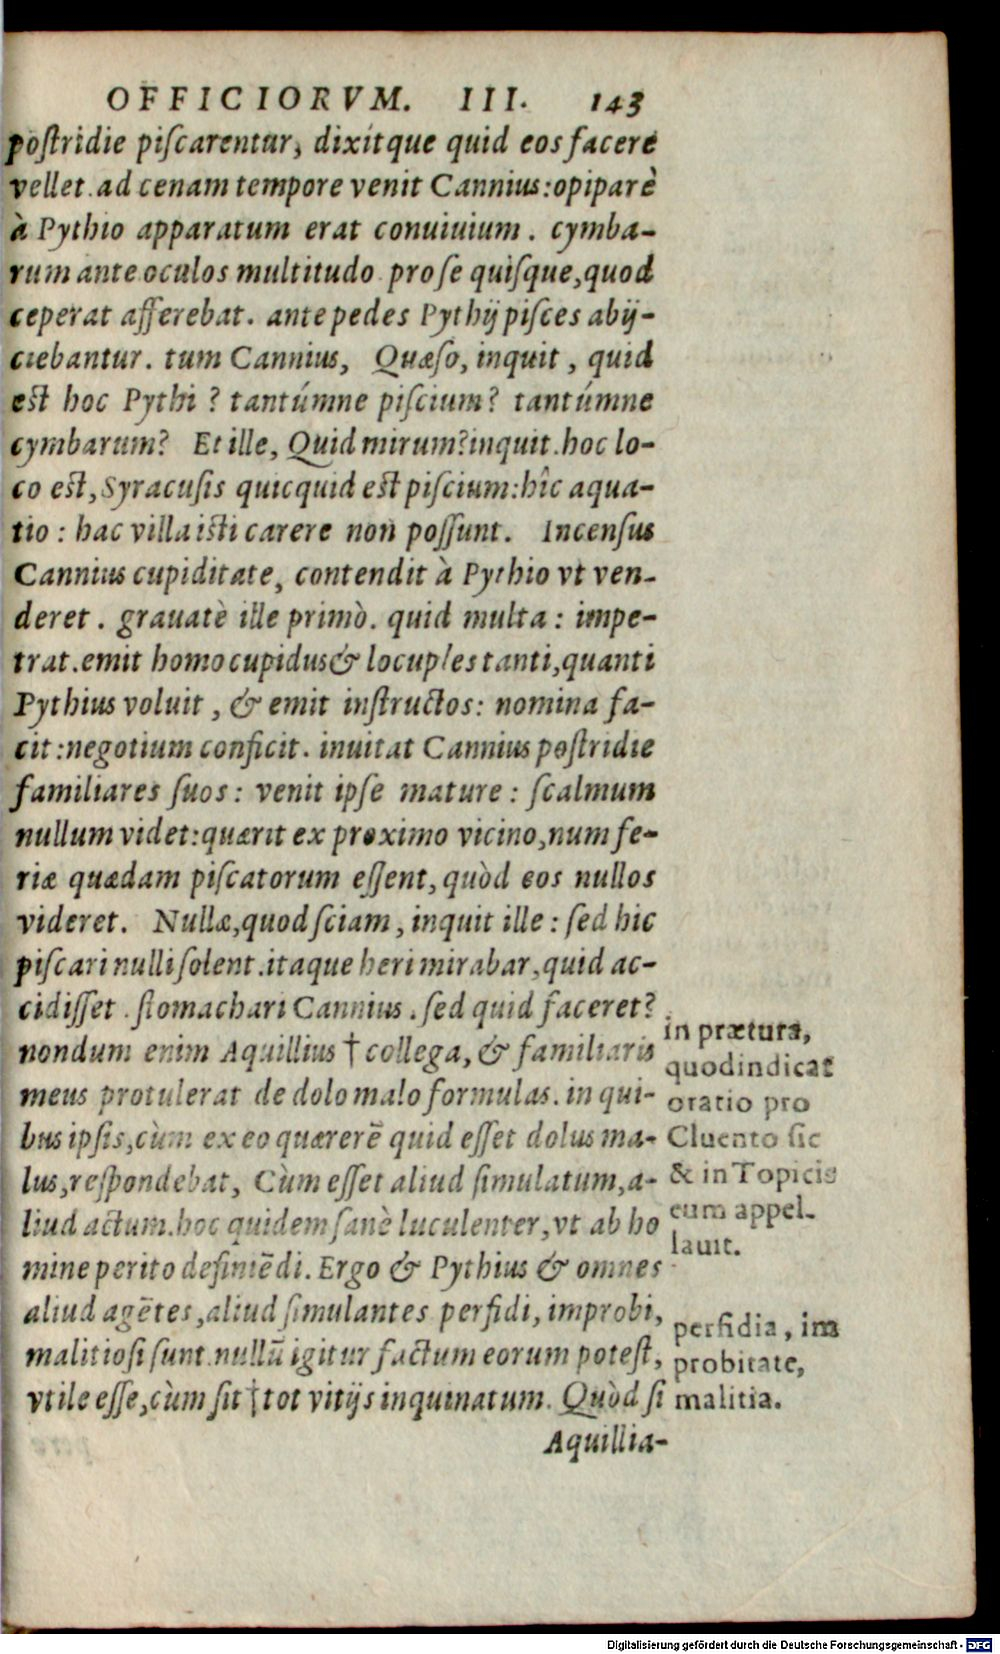 OFFICIORVM. III. 143
poſtridie piſcarentur, dixítque quid eos facere
vellet. ad cenam tempore venit Cannius: opiparè
à Pythio apparatum erat conuiuium. cymba-
rum ante oculos multitudo pro ſe quiſque, quod
ceperat afferebat. ante pedes Pythij piſces abij-
ciebantur. tum Cannius, Quæſo, inquit, quid
eſt hoc Pythi? tantúmne piſcium? tantúmne
cymbarum? Et ille, Quid mirum? inquit. hoc lo-
co eſt, Syracuſis quicquid eſt piſcium: hîc aqua-
tio: hac villa iſti carere non poſſunt. Incenſus
Cannius cupiditate, contendit à Pythio vt ven-
deret. grauatè ille primò. quid multa: impe-
trat. emit homo cupidus & locuples tanti, quanti
Pythius voluit, & emit inſtructos: nomina fa-
cit: negotium conficit. inuitat Cannius poſtridie
familiares ſuos: venit ipſe mature: ſcalmum
nullum videt: quærit ex proximo vicino, num fe-
riæ quædam piſcatorum eſſent, quòd eos nullos
videret. Nullæ, quod ſciam, inquit ille: ſed hic
piſcari nulli ſolent. itaque heri mirabar, quid ac-
cidiſſet. ſtomachari Cannius. ſed quid faceret?
nondum enim Aquillius † collega, & familiaris
meus protulerat de dolo malo formulas. in qui-
bus ipſis, cùm ex eo quærerẽ quid eſſet dolus ma-
lus, reſpondebat, Cùm eſſet aliud ſimulatum, a-
liud actum. hoc quidem ſanè luculenter, vt ab ho
mine perito definiẽdi. Ergo & Pythius & omnes
aliud agẽtes, aliud ſimulantes perfidi, improbi,
malitioſi ſunt. nullũ igitur factum eorum poteſt,
vtile eſſe, cùm ſit † tot vitijs inquinatum. Quòd ſi
Aquillia-
in prætura,
quod indicat
oratio pro
Cluento ſic
& in Topicis
eum appel-
lauit.
perfidia, im
probitate,
malitia.
Digitalisierung gefördert durch die Deutsche Forschungsgemeinschaft - DFG